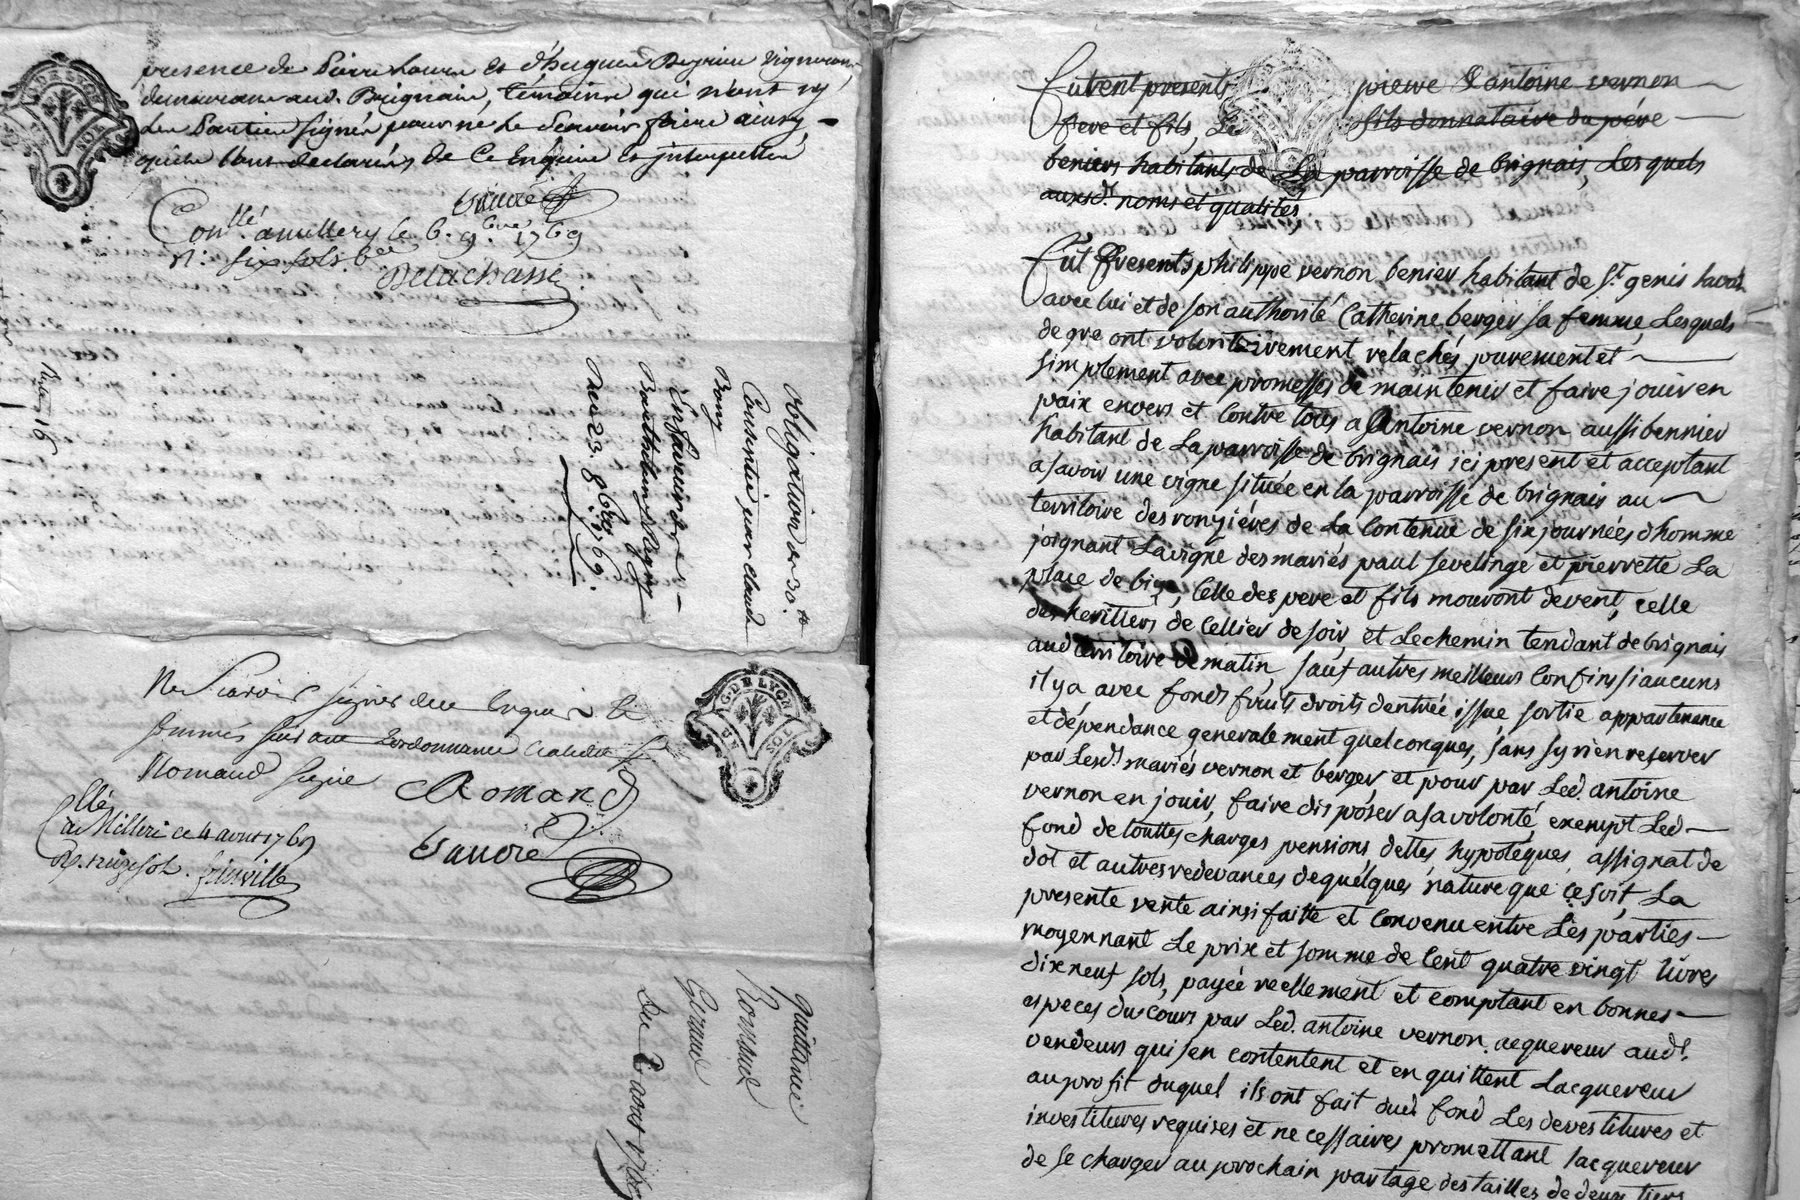 presence de Pierre et d'hugue vigneron
demeurant aud. Brignais, témoins qui n'ont ny
les parties signés pour ne le Scavoir faire ainsy
qu'ils l'ont declarés, de Ce Enquis et interpellé
Conllé a millery le 6. 9bre 1769
R. six sols.
Delachasse
Obligation de 30.tt
Consentie par claude
Bony
En faveur de
Barthelemy
Du 23. 8bre 1769.
G. DE LYON
Ne Scavoir signer de Enquis et
sommés suivant Lordonnance
Romand signé
Romand
Cllé
a Milleri ce 4 aout 1769
R. sol.
quittance
Romand
Giraud
Du aout 1769
furent presents pierre & antoine vernon
pere et fils, Le fils donnataire du pére
beniers habitants de La parroisse de brignais, Les quels
auxsd. noms et qualités
fut Presents philippe vernon benier habitant de St. genis Laval
avec lui et de son authorité Catherine berger sa femme, Lesquels
de gre ont volontairement relachés purement et
simplement avec promesses de maintenir et faire jouir en
paix envers et contre tous a Antoine vernon aussi bennier
habitant de La parroisse de brignais ici present et acceptant
a savoir une vigne située en la parroisse de brignais au
territoire des ronziéres de La Contenue de six journées d'homme
joignant La vigne des mariés paul sevelinge et pierrette La
place de bize, Celle des pere et fils mouront devent, celle
des heritiers de Cellier de soir, et Le chemin tendant de brignais
aud territoire de matin, sauf autres meilleurs Confins si aucuns
il y a avec fonds fruits droits dentrée issue sortie appartenance
et dépendance generalement quelconques, sans sy rien reserver
par Lesd. mariés vernon et berger, et pour par Led. antoine
vernon en jouir, faire disposer a sa volonté, exempt Led
fond de touttes charges pensions dettes hypoteques, assignat de
dot et autres redevances de quélques nature que ce soit La
presente vente ainsi faitte et convenu entre Les parties
moyennant Le prix et somme de Cent quatre vingt livres
dix neuf sols, payée reellement et comptant en bonnes
especes du cours par Led. antoine vernon acquereur audt.
vendeurs qui s'en contentent et en quittent Lacquereur
au profit duquel ils ont fait dud fond Les devestitures et
investitures requises et necessaires promettant lacquereur
de se charger au prochain partage des tailles de deux tiers